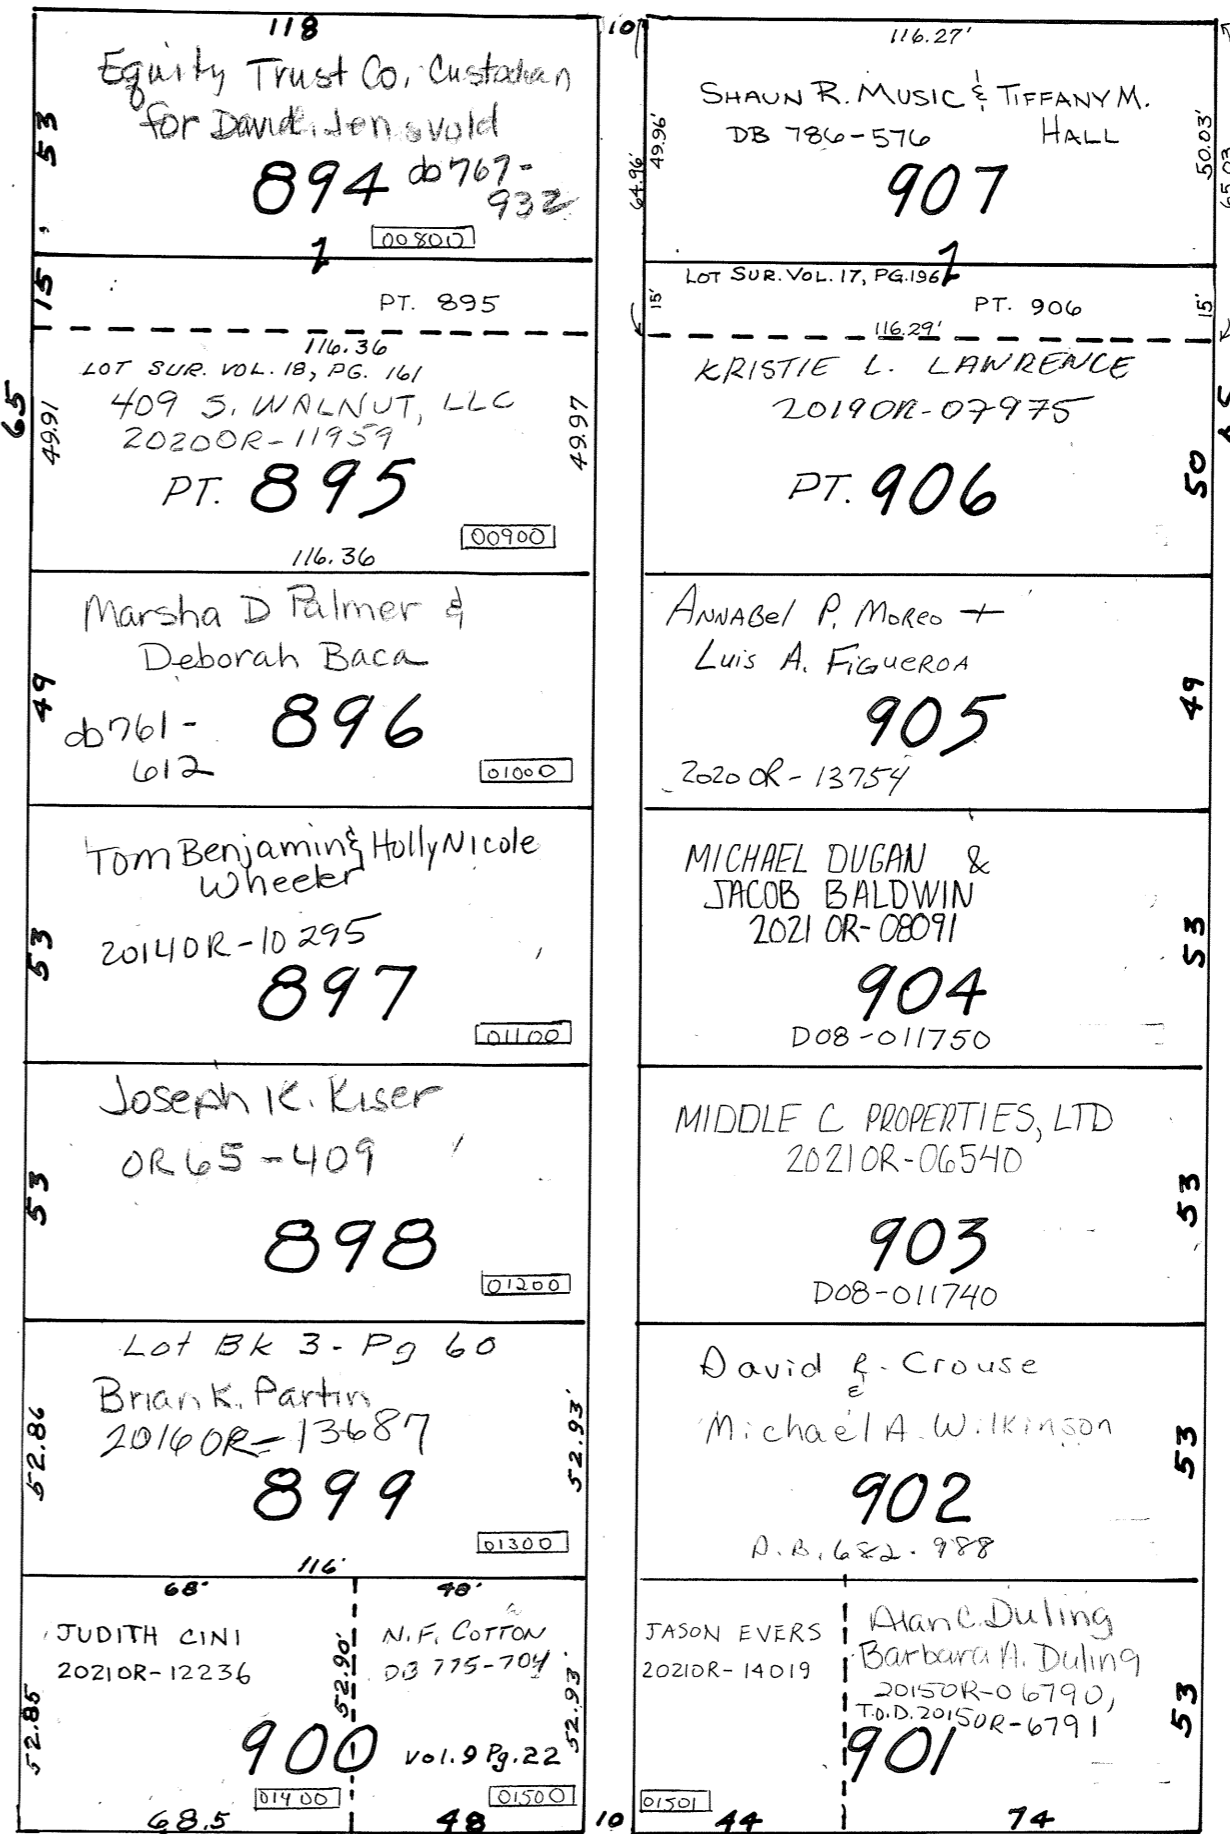 118
Equity Trust Co, Custodian
for David Jensvold
53
894 db767-
932
00800
1
15
PT. 895
116.36
LOT SUR. VOL. 18, PG. 161
409 S. WALNUT, LLC
2020OR-11959
65
49.91
49.97
PT. 895
00900
116.36
Marsha D Palmer &
Deborah Baca
49
db761-
612
896
01000
Tom Benjamin & Holly Nicole
Wheeler
2014OR-10295
53
897
01100
Joseph K. Kiser
OR65-409
53
898
01200
Lot Bk 3-Pg 60
Brian K. Partin
2016OR-13687
52.86
52.93'
899
01300
116'
68'
48'
JUDITH CINI
2021OR-12236
52.90'
N.F. COTTON
DB 775-704
52.85
52.93'
900
Vol.9 Pg.22
01400
01500
68.5
48
10
10
116.27'
SHAUN R. MUSIC & TIFFANY M.
HALL
DB 786-576
49.96'
64.96'
50.03'
65.03
907
1
LOT SUR. VOL. 17, PG.196
15'
PT. 906
15'
116.29'
KRISTIE L. LAWRENCE
2019OR-07975
PT. 906
50
ANNABEL P. MOREO +
Luis A. FIGUEROA
905
49
2020 OR-13754
MICHAEL DUGAN &
JACOB BALDWIN
2021 OR-08091
53
904
D08-011750
MIDDLE C PROPERTIES, LTD
2021OR-06540
53
903
D08-011740
David R. Crouse
&
Michael A. Wilkinson
53
902
D.B. 682-988
JASON EVERS
2021OR-14019
Alan C. Duling
Barbara A. Duling
2015OR-06790,
T.O.D. 2015OR-6791
53
901
01501
44
74